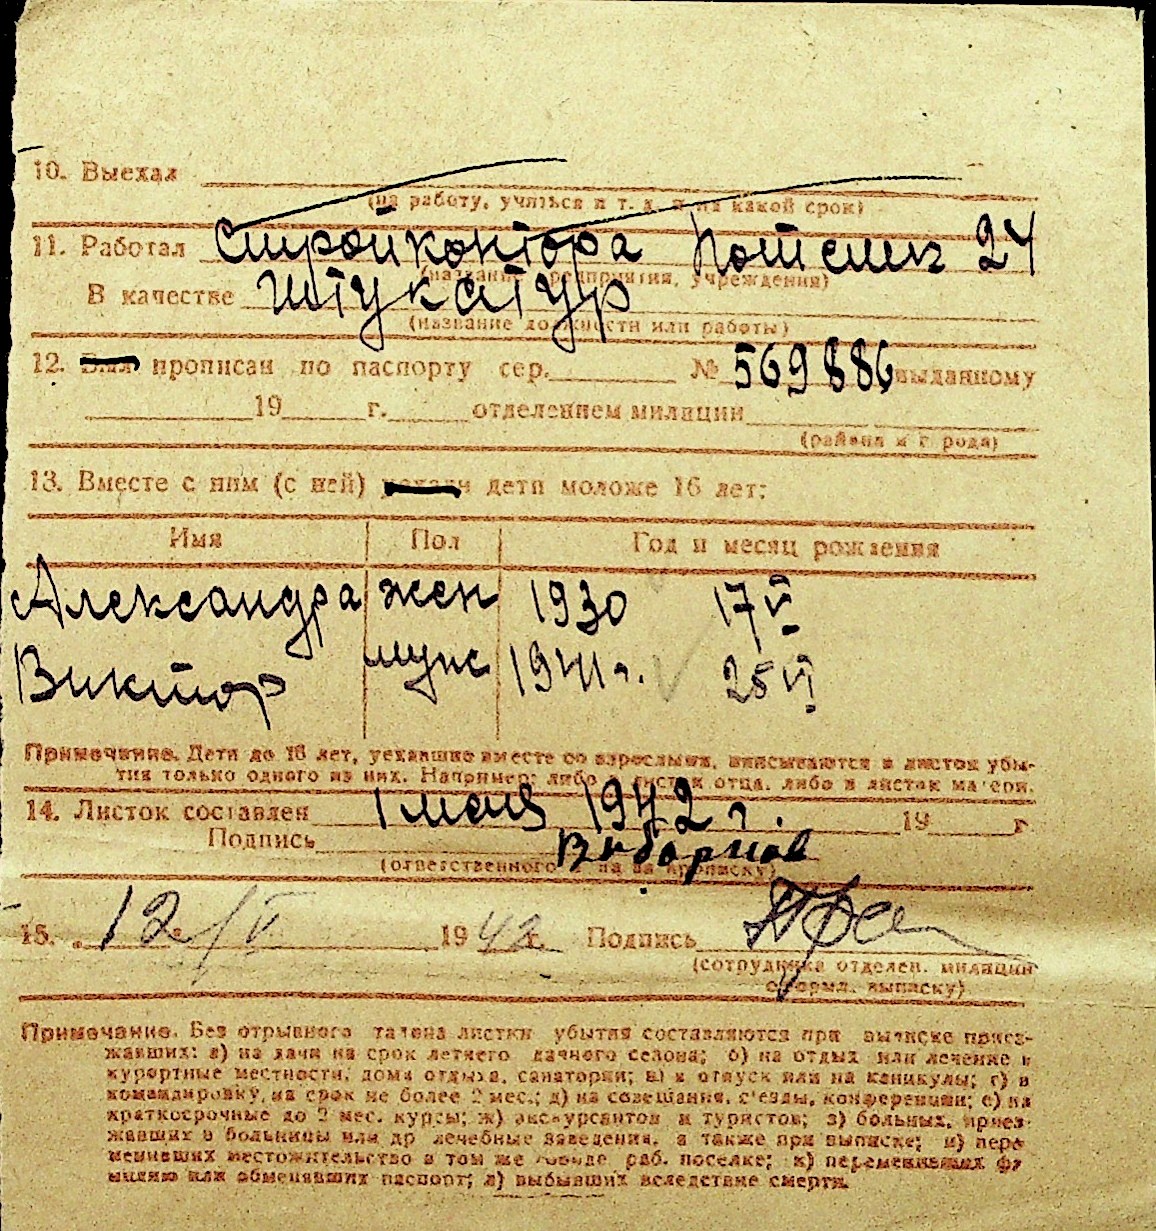 10. Выехал
(на работу, учиться и т. д. и на какой срок)
11. Работал Стройконтора 24
(название предприятия, учреждения)
В качестве штукатур
(название должности или работы)
12. прописан по паспорту сер. № 569886 выданному
19 г. отделением милиции
(района и города)
13. Вместе с ним (с ней) дети моложе 16 лет:
Имя Пол Год и месяц рождения
Александра жен 1930 17 VI
Виктор муж 1941 г. 25 VI
Примечание. Дети до 16 лет, уехавшие вместе со взрослыми, вписываются в листок убы-
тия только одного из них. Например: либо в листок отца, либо в листок матери.
14. Листок составлен 1 мая 1942 г. 19 г.
Подпись
(ответственного за прописку)
15. 12/V 1942 г. Подпись
(сотрудника отделен. милиции
оформл. выписку)
Примечание. Без отрывного талона листки убытия составляются при выписке приез-
жавших: а) на дачи на срок летнего дачного сезона; б) на отдых или лечение в
курортные местности, дома отдыха, санатории; в) в отпуск или на каникулы; г) в
командировку, на срок не более 2 мес.; д) на совещания, съезды, конференции; е) на
краткосрочные до 2 мес. курсы; ж) экскурсантов и туристов; з) больных, приез-
жавших в больницы или др лечебные заведения, а также при выписке; и) пере-
менивших местожительство в том же городе раб. поселке; к) переменивших фа-
милию или обменявших паспорт; л) выбывших вследствие смерти.